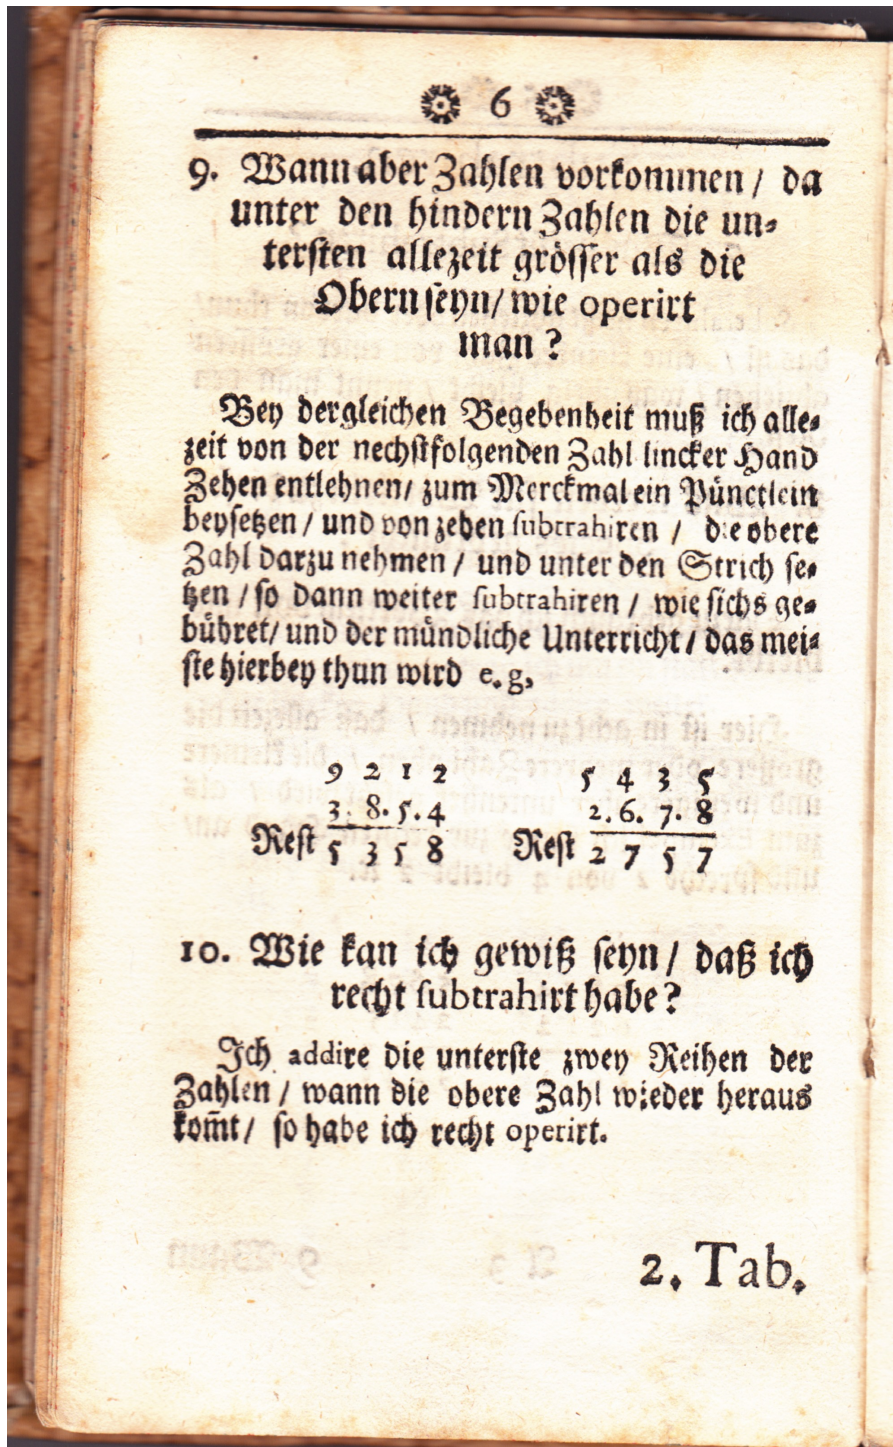 6
9. Wann aber Zahlen vorkommen / da
unter den hindern Zahlen die un⸗
tersten allezeit grösser als die
Obern seyn / wie operirt
man ?
Bey dergleichen Begebenheit muß ich alle⸗
zeit von der nechstfolgenden Zahl lincker Hand
Zehen entlehnen / zum Merckmal ein Pünctlein
beysetzen / und von zehen subtrahiren / die obere
Zahl darzu nehmen / und unter den Strich se⸗
tzen / so dann weiter subtrahiren / wie sichs ge⸗
bühret / und der mündliche Unterricht / das mei⸗
ste hierbey thun wird e. g.
9 2 1 2 5 4 3 5
3. 8. 5. 4 2. 6. 7. 8
Rest 5 3 5 8 Rest 2 7 5 7
10. Wie kan ich gewiß seyn / daß ich
recht subtrahirt habe ?
Ich addire die unterste zwey Reihen der
Zahlen / wann die obere Zahl wieder heraus
kom̅t / so habe ich recht operirt.
2. Tab.